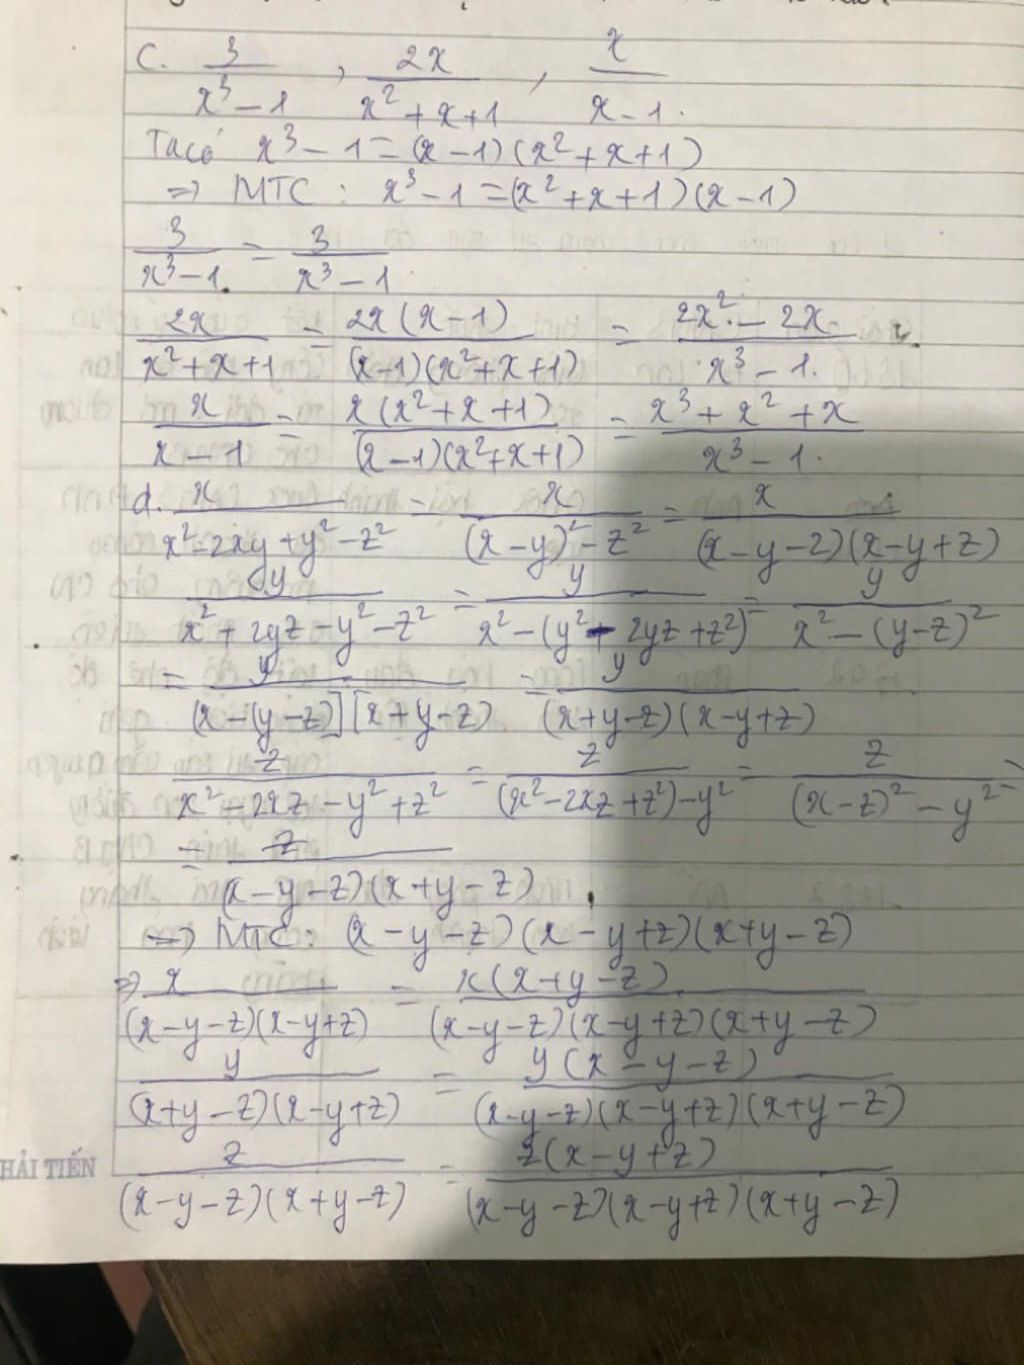 C. 3/(x³-1) , 2x/(x²+x+1) , x/(x-1).
Ta có x³-1=(x-1)(x²+x+1)
=> MTC: x³-1=(x²+x+1)(x-1)
3/(x³-1) = 3/(x³-1)
2x/(x²+x+1) = 2x(x-1)/((x-1)(x²+x+1)) = (2x²-2x)/(x³-1).
x/(x-1) = x(x²+x+1)/((x-1)(x²+x+1)) = (x³+x²+x)/(x³-1).
d. x/(x²-2xy+y²-z²) = x/((x-y)²-z²) = x/((x-y-z)(x-y+z))
y/(x²+2yz-y²-z²) = y/(x²-(y²-2yz+z²)) = y/(x²-(y-z)²)
= y/((x-(y-z)][x+(y-z)) = y/((x+y-z)(x-y+z))
z/(x²-2xz-y²+z²) = z/((x²-2xz+z²)-y²) = z/((x-z)²-y²)
= z/((x-y-z)(x+y-z))
=> MTC: (x-y-z)(x-y+z)(x+y-z)
=> x/((x-y-z)(x-y+z)) = x(x+y-z)/((x-y-z)(x-y+z)(x+y-z))
y/((x+y-z)(x-y+z)) = y(x-y-z)/((x-y-z)(x-y+z)(x+y-z))
z/((x-y-z)(x+y-z)) = z(x-y+z)/((x-y-z)(x-y+z)(x+y-z))
HẢI TIẾN